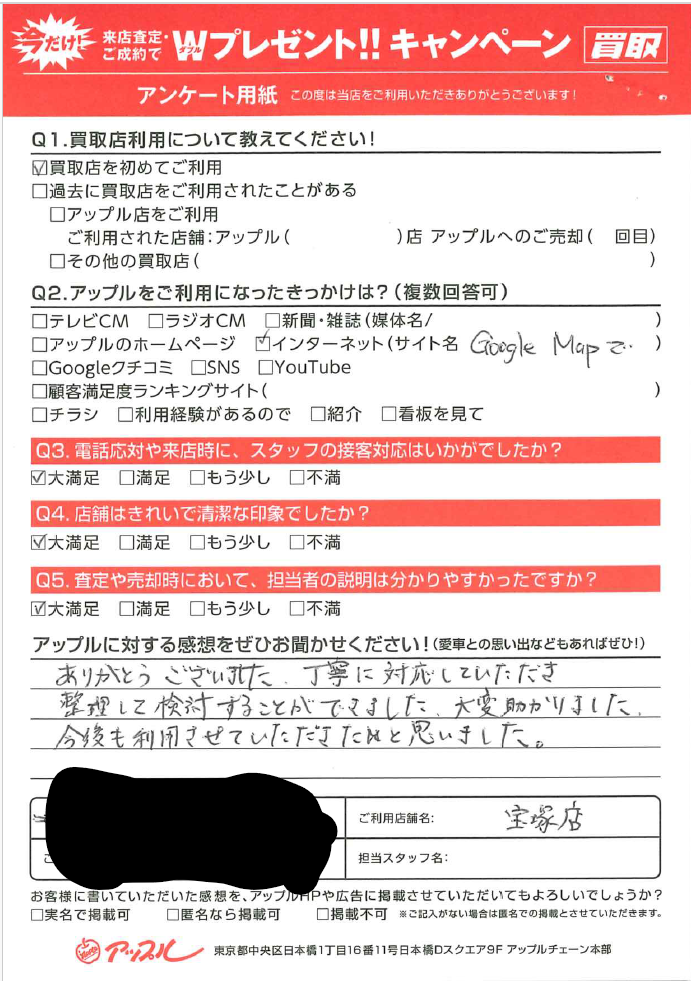 今だけ! 来店査定・ご成約で Wダブルプレゼント!! キャンペーン 買取
アンケート用紙 この度は当店をご利用いただきありがとうございます!
Q1.買取店利用について教えてください!
☑買取店を初めてご利用
□過去に買取店をご利用されたことがある
□アップル店をご利用
ご利用された店舗:アップル( )店 アップルへのご売却( 回目)
□その他の買取店( )
Q2.アップルをご利用になったきっかけは?(複数回答可)
□テレビCM □ラジオCM □新聞・雑誌(媒体名/ )
□アップルのホームページ ☑インターネット(サイト名 Google Mapで. )
□Googleクチコミ □SNS □YouTube
□顧客満足度ランキングサイト( )
□チラシ □利用経験があるので □紹介 □看板を見て
Q3. 電話応対や来店時に、スタッフの接客対応はいかがでしたか?
☑大満足 □満足 □もう少し □不満
Q4. 店舗はきれいで清潔な印象でしたか?
☑大満足 □満足 □もう少し □不満
Q5. 査定や売却時において、担当者の説明は分かりやすかったですか?
☑大満足 □満足 □もう少し □不満
アップルに対する感想をぜひお聞かせください!(愛車との思い出などもあればぜひ!)
ありがとうございました、丁寧に対応していただき
整理して検討することができました、大変助かりました、
今後も利用させていただきたいと思いました。
ご利用店舗名: 宝塚店
担当スタッフ名:
お客様に書いていただいた感想を、アップルHPや広告に掲載させていただいてもよろしいでしょうか?
□実名で掲載可 □匿名なら掲載可 □掲載不可 ※ご記入がない場合は匿名での掲載とさせていただきます。
アップル 東京都中央区日本橋1丁目16番11号日本橋Dスクエア9F アップルチェーン本部